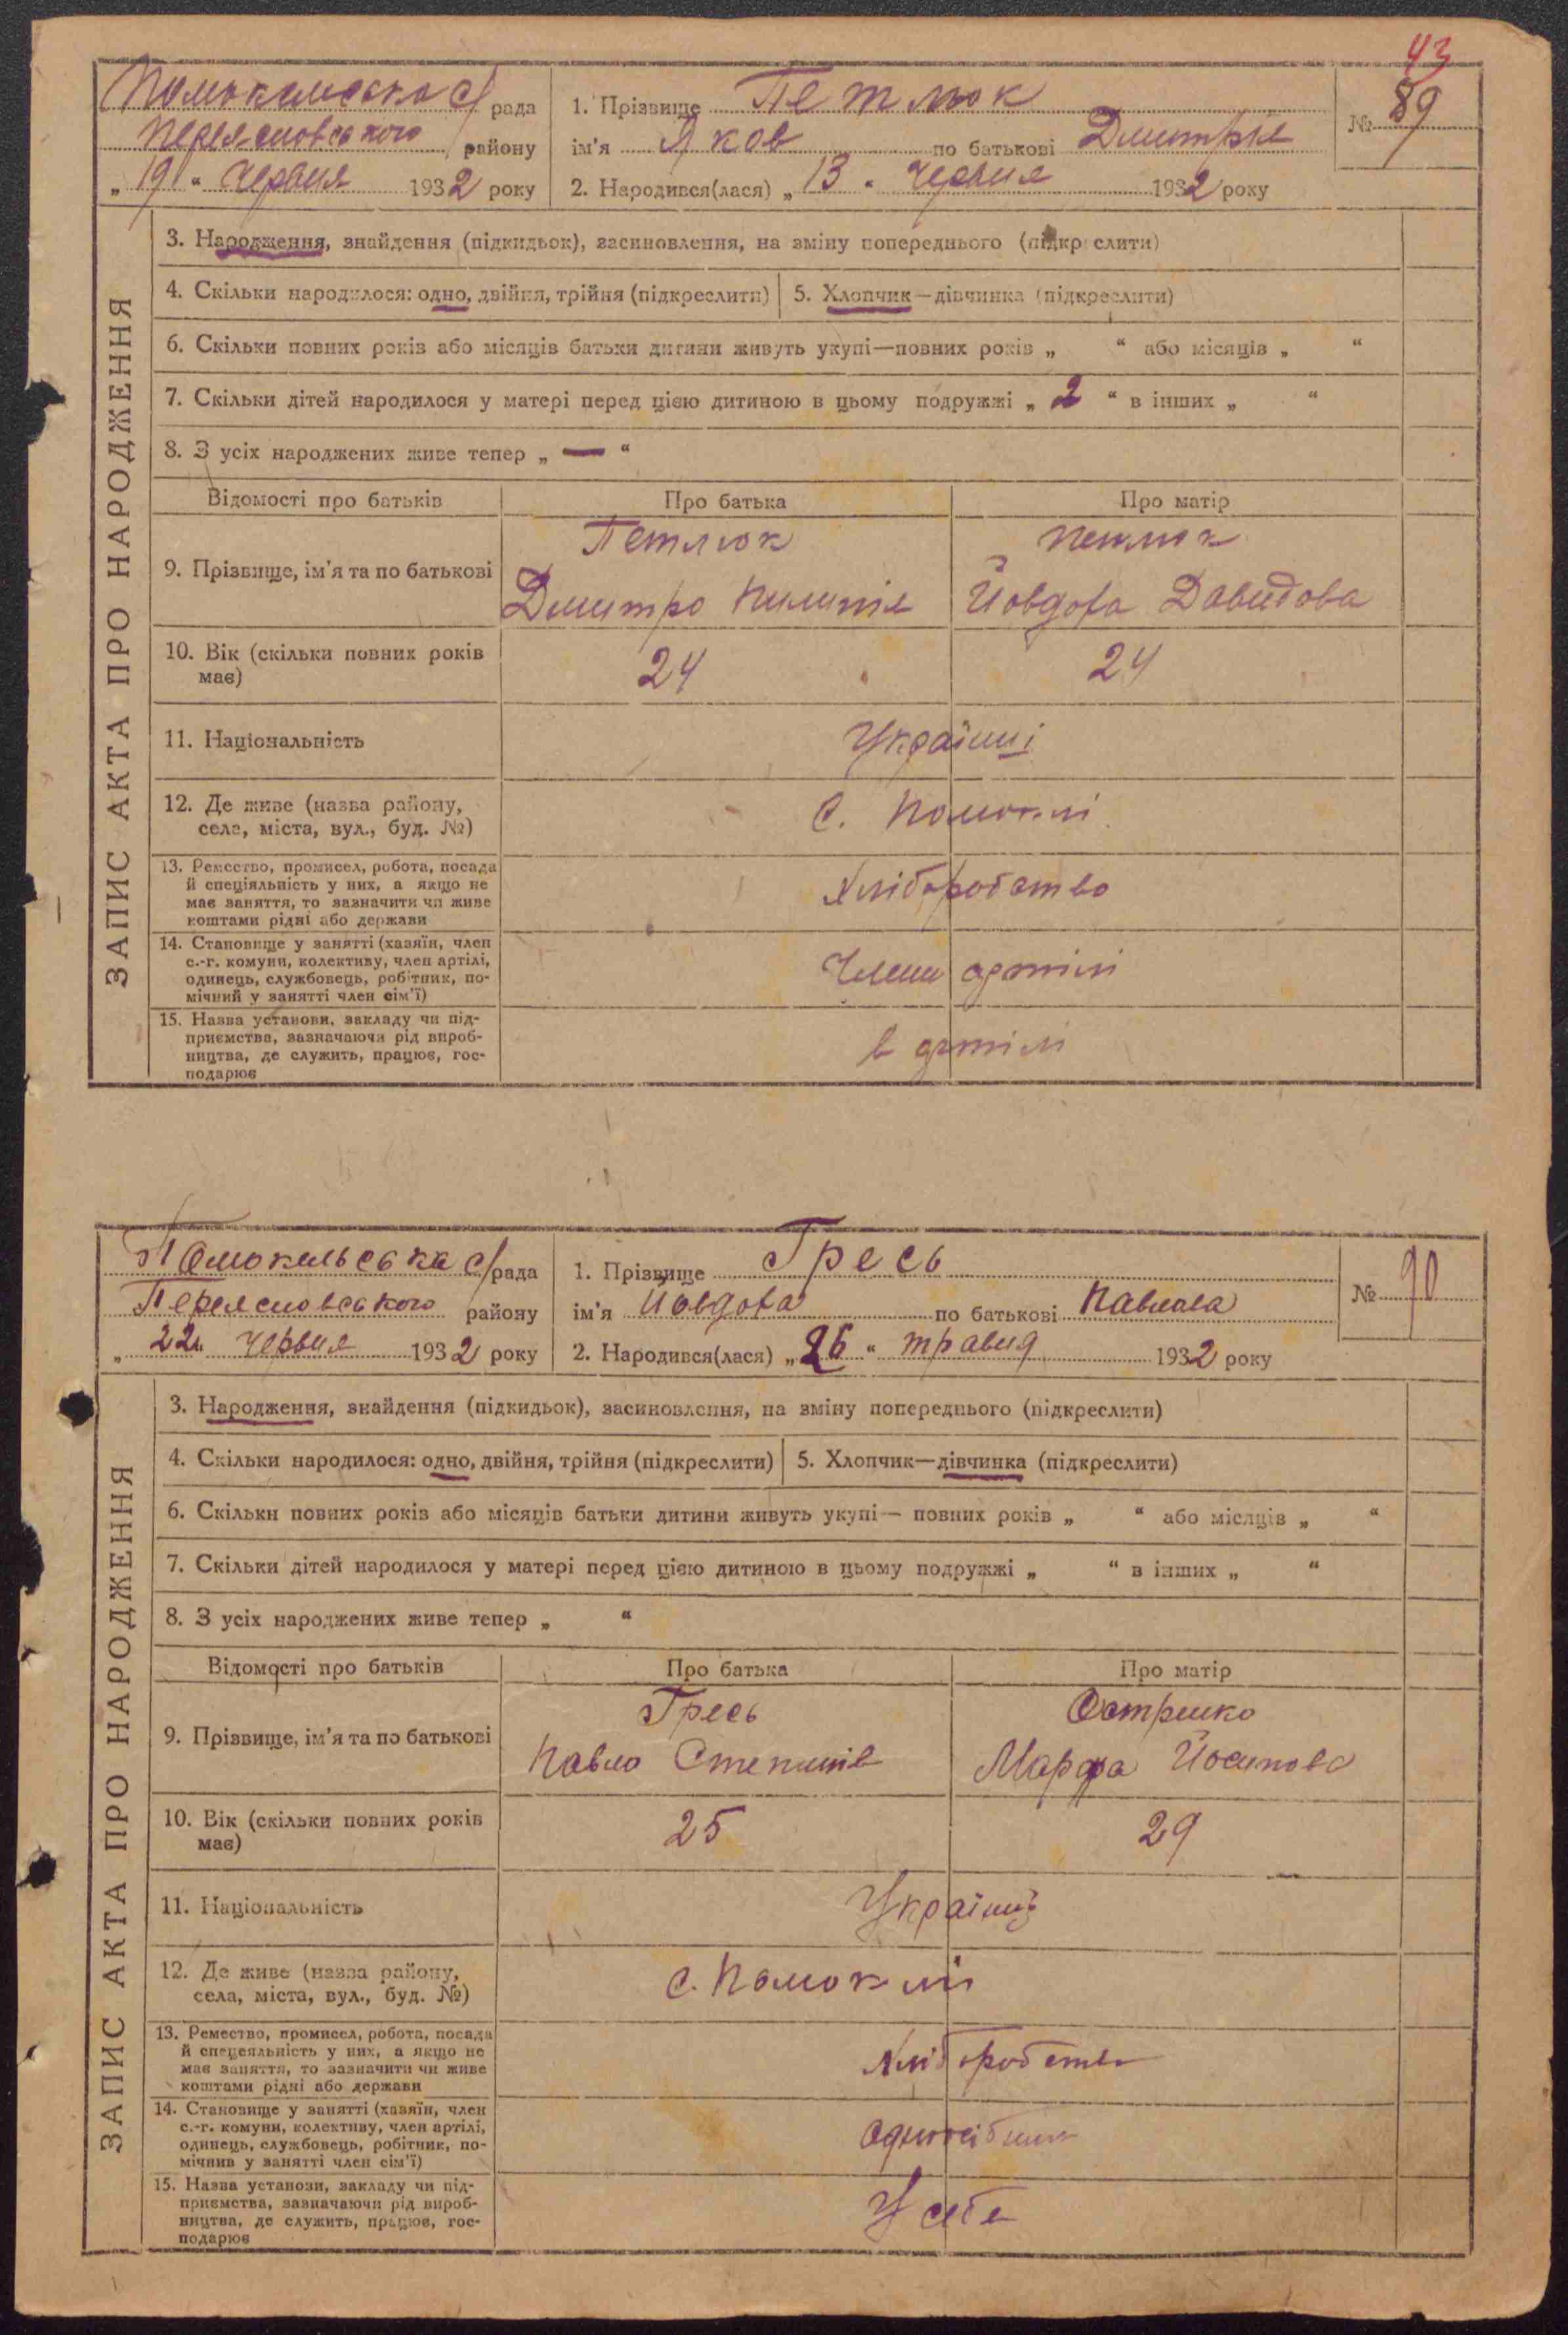 43
Помокельська с/рада
Переяславського району
„19“ Червня 1932 року
1. Прізвище Петлюк
ім'я Яков по батькові Дмитрів
2. Народився(лася) „13“ Червня 1932 року
№ 89
ЗАПИС АКТА ПРО НАРОДЖЕННЯ
3. Народження, знайдення (підкидьок), засиновлення, на зміну попереднього (підкреслити)
4. Скільки народилося: одно, двійня, трійня (підкреслити) 5. Хлопчик—дівчинка (підкреслити)
6. Скільки повних років або місяців батьки дитини живуть укупі—повних років „ “ або місяців „ “
7. Скільки дітей народилося у матері перед цією дитиною в цьому подружжі „ 2 “ в інших „ “
8. З усіх народжених живе тепер „ — “
Відомості про батьків Про батька Про матір
9. Прізвище, ім'я та по батькові
Петлюк
Дмитро Пилипів
Петлюк
Йовдоха Давидова
10. Вік (скільки повних років
має)
24 24
11. Національність Українці
12. Де живе (назва району,
села, міста, вул., буд. №)
с. Помоклі
13. Ремество, промисел, робота, посада
й спеціяльність у них, а якщо не
має заняття, то зазначити чи живе
коштами рідні або держави
Хліборобство
14. Становище у занятті (хазяїн, член
с.-г. комуни, колективу, член артілі,
одинець, службовець, робітник, по-
мічний у занятті член сім'ї)
Члени артілі
15. Назва установи, закладу чи під-
приємства, зазначаючи рід вироб-
ництва, де служить, працює, гос-
подарює
в артілі
Помокельська с/рада
Переясловського району
„22“ Червня 1932 року
1. Прізвище Гресь
ім'я Йовдоха по батькові Павлова
2. Народився(лася) „26“ травня 1932 року
№ 90
ЗАПИС АКТА ПРО НАРОДЖЕННЯ
3. Народження, знайдення (підкидьок), засиновлення, на зміну попереднього (підкреслити)
4. Скільки народилося: одно, двійня, трійня (підкреслити) 5. Хлопчик—дівчинка (підкреслити)
6. Скільки повних років або місяців батьки дитини живуть укупі— повних років „ “ або місяців „ “
7. Скільки дітей народилося у матері перед цією дитиною в цьому подружжі „ “ в інших „ “
8. З усіх народжених живе тепер „ “
Відомості про батьків Про батька Про матір
9. Прізвище, ім'я та по батькові
Гресь
Павло
Марфа Йосипова
10. Вік (скільки повних років
має)
25 29
11. Національність Українці
12. Де живе (назва району,
села, міста, вул., буд. №)
с. Помоклі
13. Ремество, промисел, робота, посада
й спецеяльність у них, а якщо не
має заняття, то зазначити чи живе
коштами рідні або держави
Хліборобство
14. Становище у занятті (хазяїн, член
с.-г. комуни, колективу, член артілі,
одинець, службовець, робітник, по-
мічнив у занятті член сім'ї)
15. Назва установи, закладу чи під-
приємства, зазначаючи рід вироб-
ництва, де служить, працює, гос-
подарює
У себе